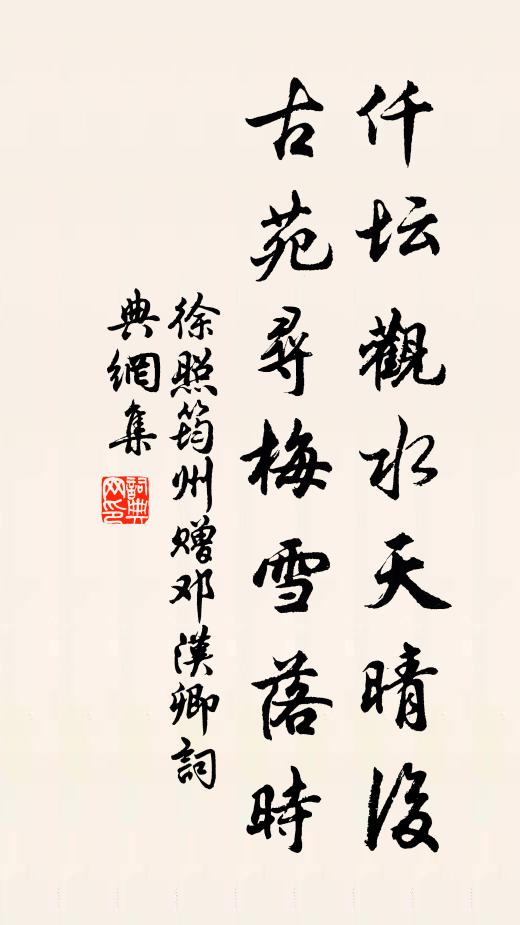 仟坛觀水天晴後
古苑尋梅雪落時
徐照筠州赠邓漢卿詞
典網集
詞典
网印